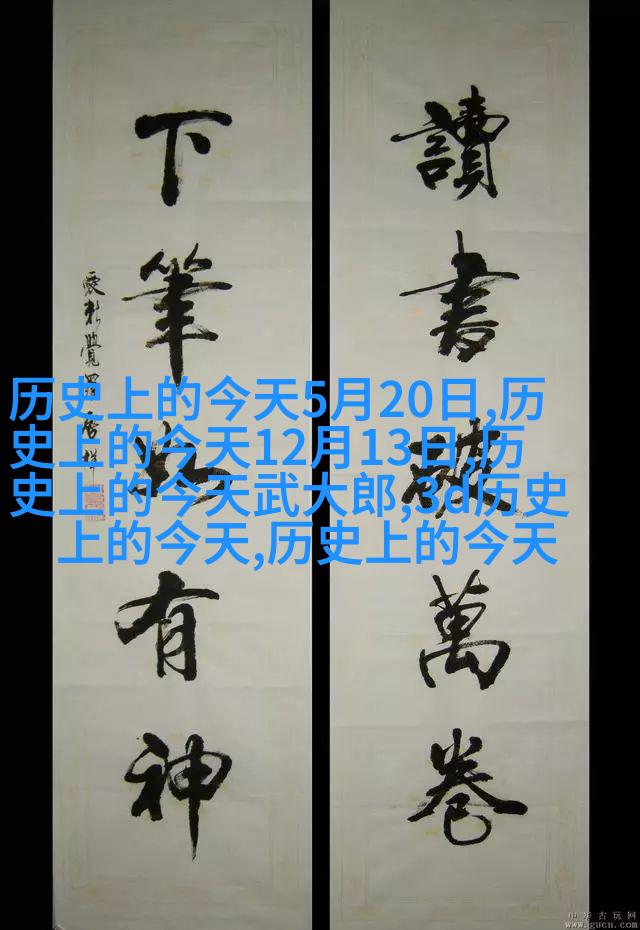 讀書破萬卷
下筆如有神
愛新覺羅
历史上的今天5月20日,历
史上的今天12月13日,历
史上的今天武大郎,3d历史
上的今天,历史上的今天
中华古玩网
www.gucn.com